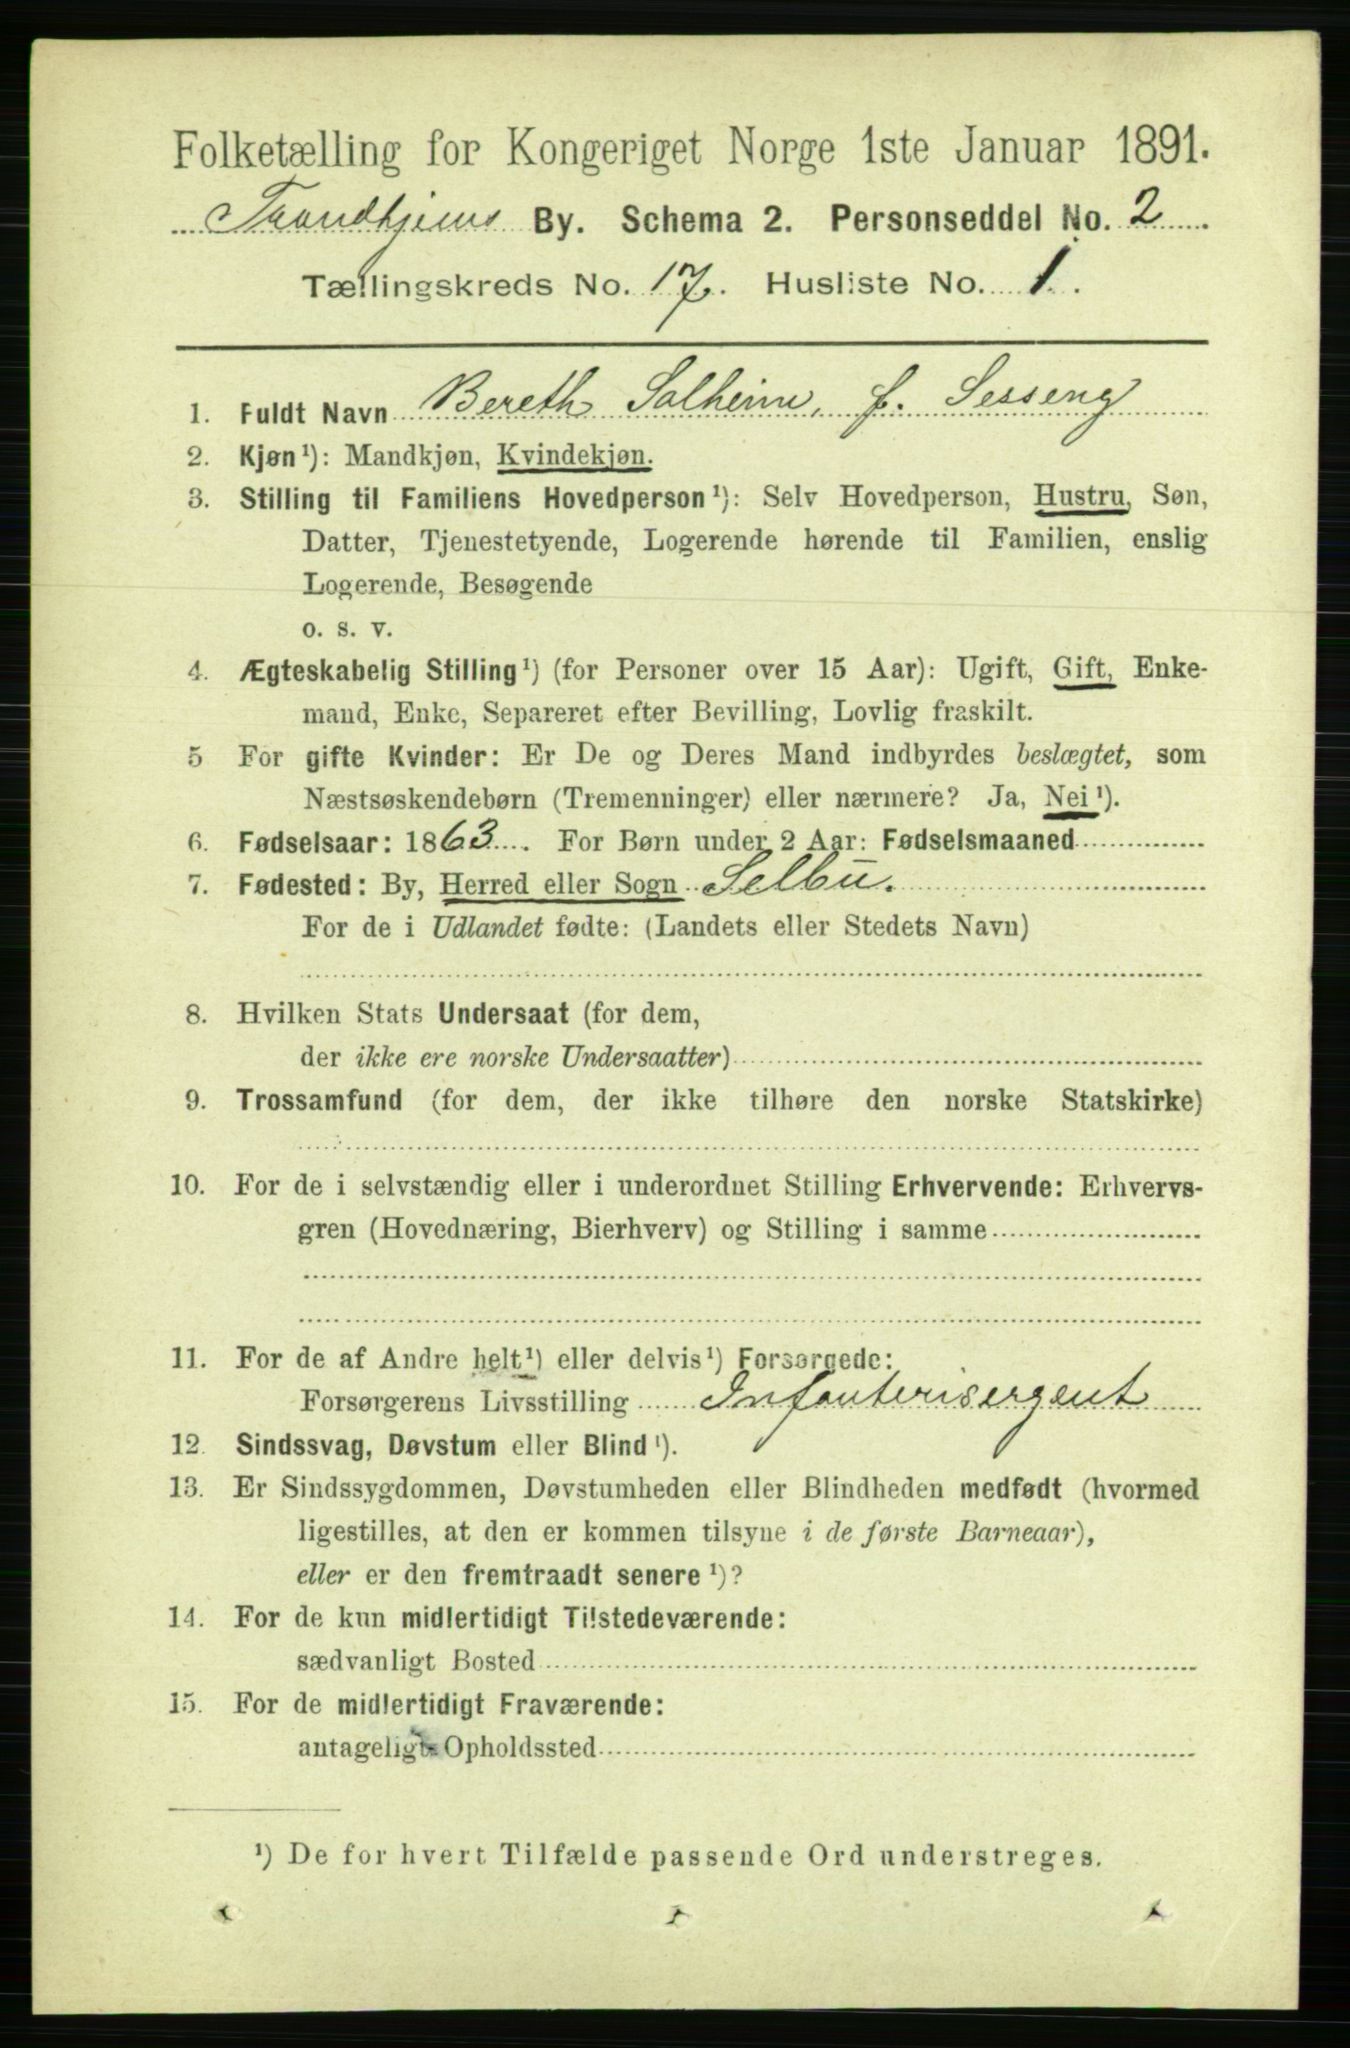 Folketælling for Kongeriget Norge 1ste Januar 1891.
Trondhjems By. Schema 2. Personseddel No. 2
Tællingskreds No. 17. Husliste No. 1.
1. Fuldt Navn Bereth Solheim, f. Sesseng
2. Kjøn¹): Mandkjøn, Kvindekjøn.
3. Stilling til Familiens Hovedperson¹): Selv Hovedperson, Hustru, Søn,
Datter, Tjenestetyende, Logerende hørende til Familien, enslig
Logerende, Besøgende
o. s. v.
4. Ægteskabelig Stilling¹) (for Personer over 15 Aar): Ugift, Gift, Enke-
mand, Enke, Separeret efter Bevilling, Lovlig fraskilt.
5 For gifte Kvinder: Er De og Deres Mand indbyrdes beslægtet, som
Næstsøskendebørn (Tremenninger) eller nærmere? Ja, Nei¹).
6. Fødselsaar: 1863. For Børn under 2 Aar: Fødselsmaaned
7. Fødested: By, Herred eller Sogn Selbu.
For de i Udlandet fødte: (Landets eller Stedets Navn)
8. Hvilken Stats Undersaat (for dem,
der ikke ere norske Undersaatter)
9. Trossamfund (for dem, der ikke tilhøre den norske Statskirke)
10. For de i selvstændig eller i underordnet Stilling Erhvervende: Erhvervs-
gren (Hovednæring, Bierhverv) og Stilling i samme
11. For de af Andre helt¹) eller delvis¹) Forsørgede:
Forsørgerens Livsstilling Infanterisergent
12. Sindssvag, Døvstum eller Blind¹).
13. Er Sindssygdommen, Døvstumheden eller Blindheden medfødt (hvormed
ligestilles, at den er kommen tilsyne i de første Barneaar),
eller er den fremtraadt senere¹)?
14. For de kun midlertidigt Tilstedeværende:
sædvanligt Bosted
15. For de midlertidigt Fraværende:
antageligt Opholdssted
¹) De for hvert Tilfælde passende Ord understreges.